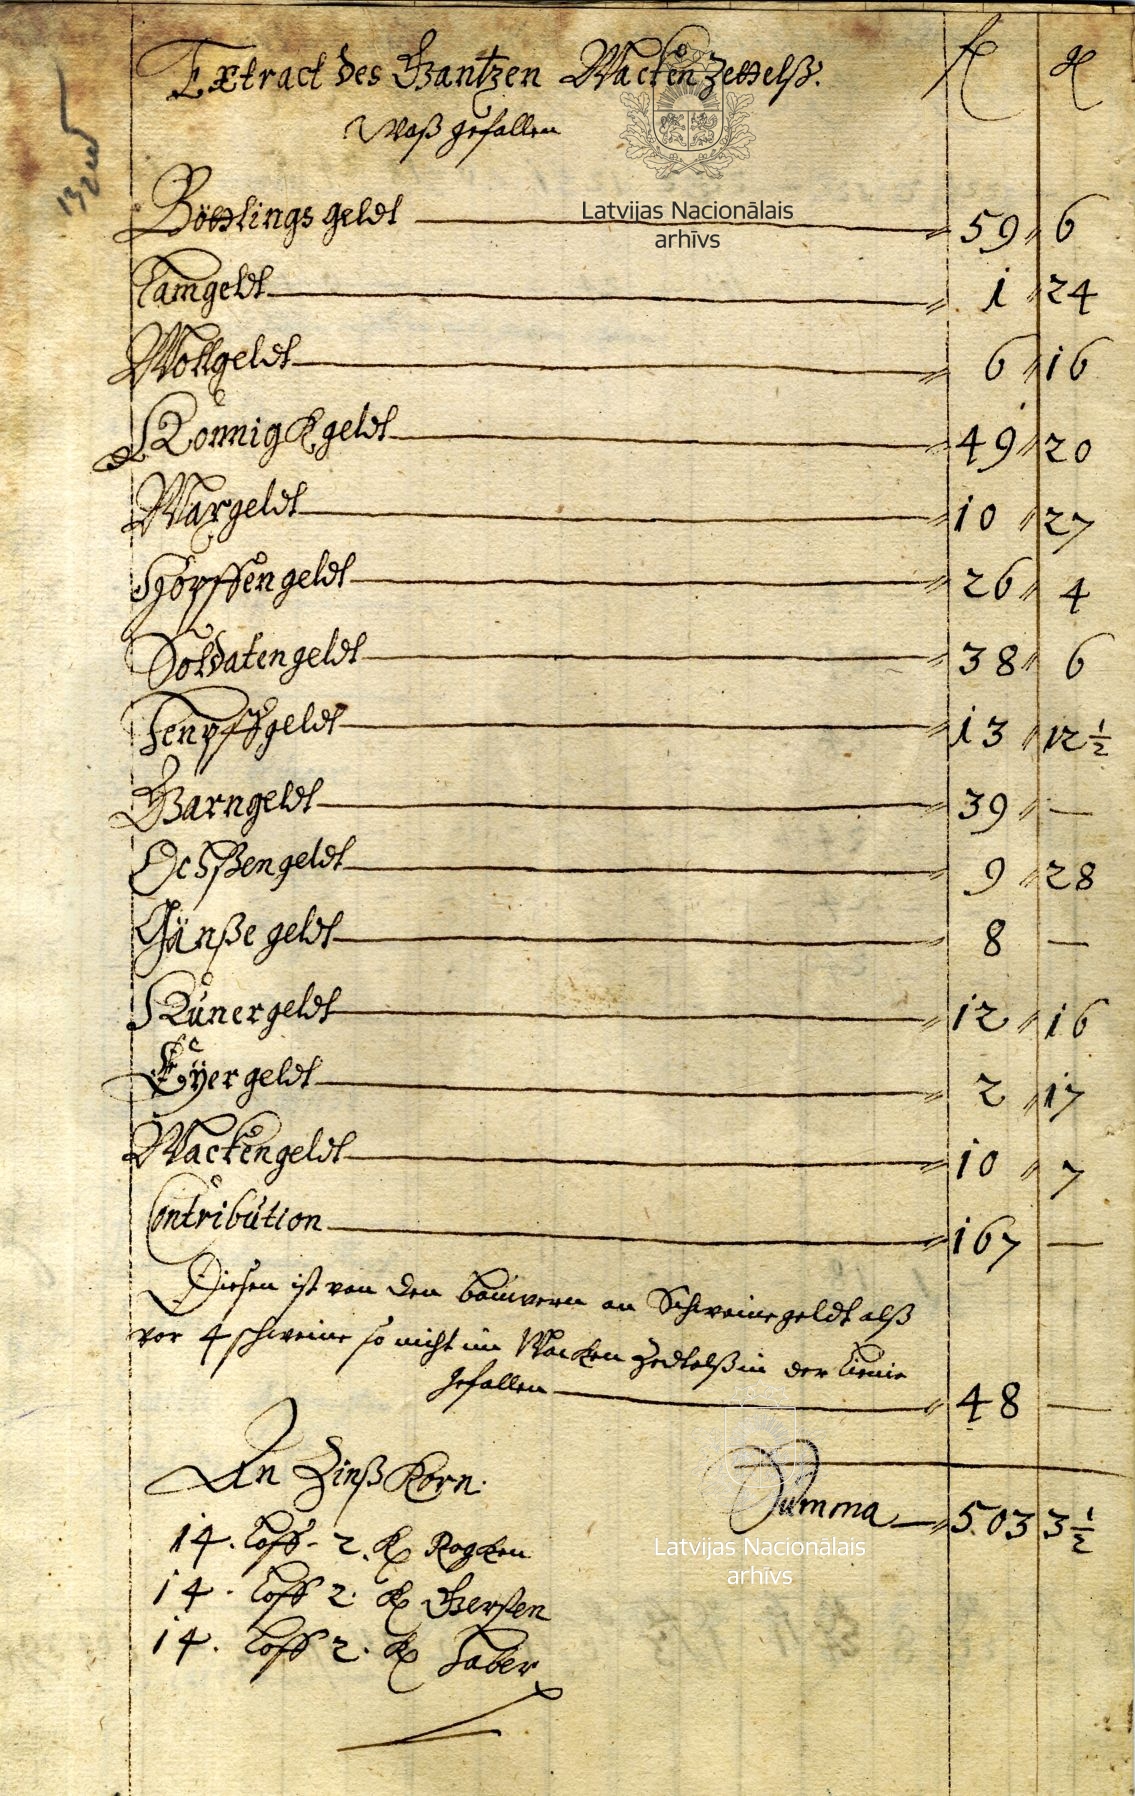 Extract des Gantzen Wacken Zettelß. fl gl
Waß gefallen
Latvijas Nacionālais
arhīvs
Böttlings geldt 59 6
Lamgeldt 1 24
Wollgeldt 6 16
Konnigk geldt 49 20
Waxgeldt 10 27
Hopffengeldt 26 4
Soldatengeldt 38 6
Henpffgeldt 13 12 ½
Garngeldt 39 —
Ochßengeldt 9 28
Gänße geldt 8 —
Hünergeldt 12 16
Eÿergeldt 2 17
Wackengeldt 10 7
Contribution 167 —
Diesen ist von den bauwern an Schweinegeldt alß
vor 4 schweine so nicht im Wacken Zedtelß in der Linie
gefallen 48 —
An Zinß Korn.
Summa 503 3 ½
14. Loff. 2. K Rogken
14. Loff 2. K Gersten
14. Loff 2. K Haber
Latvijas Nacionālais
arhīvs